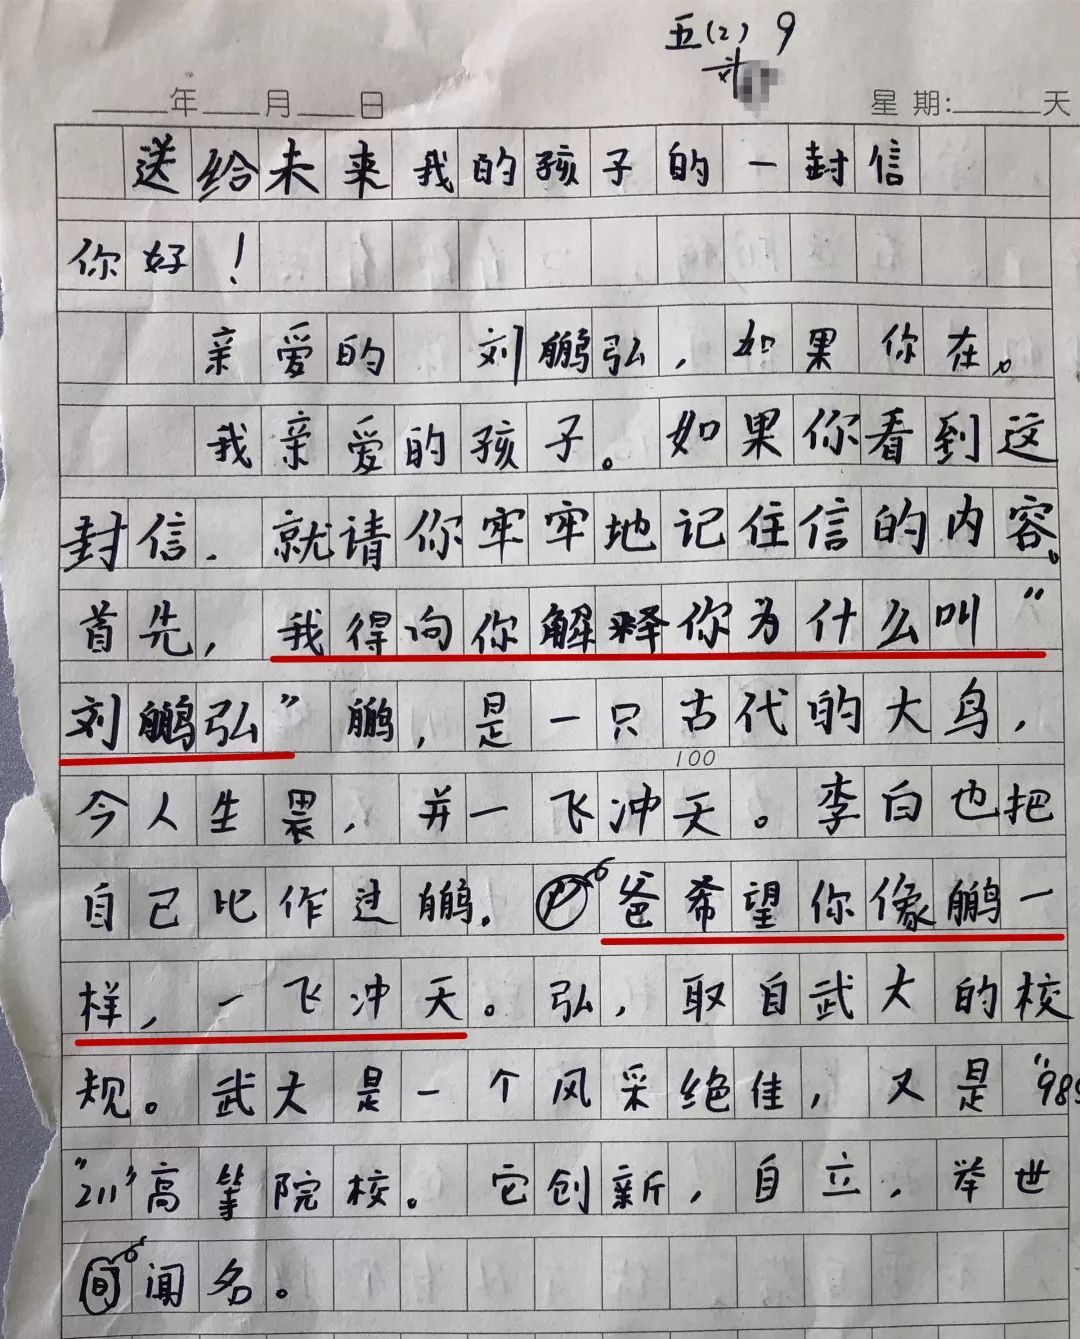 五(2) 9
刘
年 月 日 星期: 天
送给未来我的孩子的一封信
你好！
亲爱的 刘鹏弘，如果你在。
我亲爱的孩子。如果你看到这
封信. 就请你牢牢地记住信的内容。
首先，我得向你解释你为什么叫“
刘鹏弘”鹏，是一只古代的大鸟，
100
今人生畏，并一飞冲天。李白也把
自己比作过鹏. 爸希望你像鹏一
样，一飞冲天。弘，取自武大的校
规。武大是一个风采绝佳，又是“985
“211”高等院校。它创新，自立，举世
闻名。